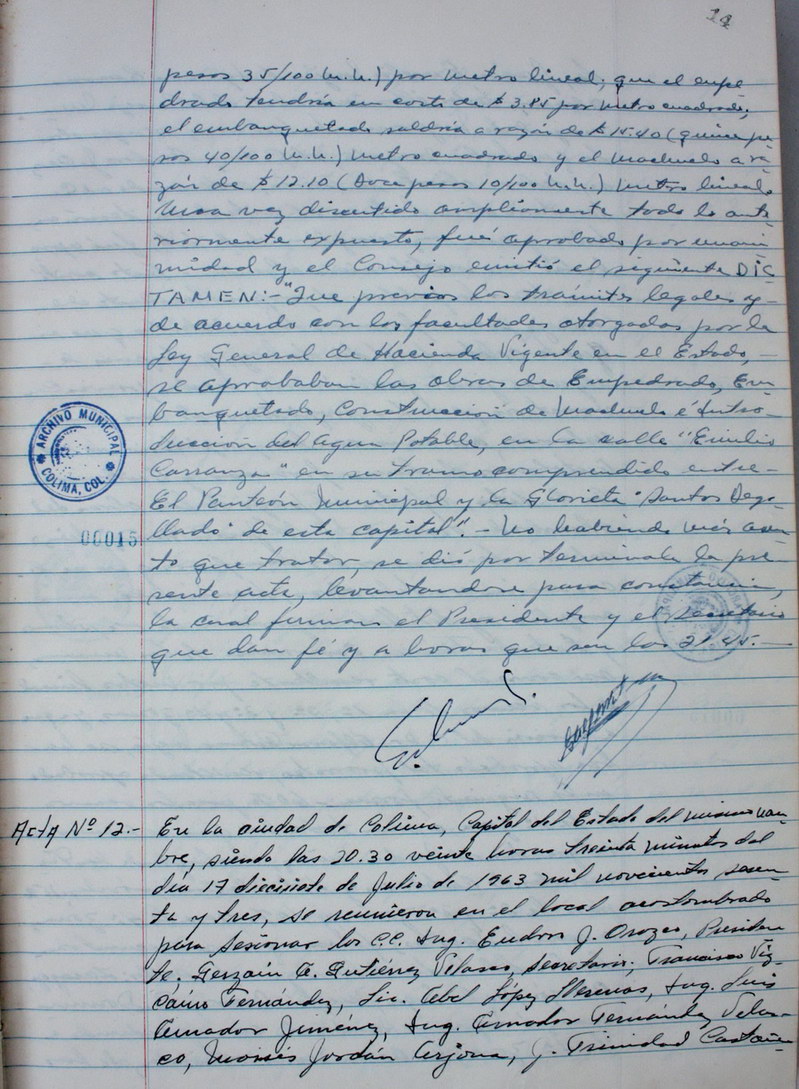 14
pesos 35/100 M.N.) por metro lineal; que el empe
drado tendría un costo de $ 3.85 por metro cuadrado;
el embanquetado saldría a razón de $ 15.40 (quince pe
sos 40/100 M.N.) metro cuadrado y el machuelo a ra
zón de $ 12.10 (Doce pesos 10/100 M.N.) metro lineal.
Una vez discutido ampliamente todo lo ante
riormente expuesto, fué aprobado por unani
midad y el Consejo emitió el siguiente DIC
TAMEN:- "Que previos los trámites legales y-
de acuerdo con las facultades otorgadas por la
Ley General de Hacienda Vigente en el Estado,-
se aprobaban las obras de Empedrado, Em
banquetado, Construcción de Machuelo é intro-
ducción del Agua Potable, en la calle "Emilio
Carranza" en su tramo comprendido entre-
El Panteón Municipal y la Glorieta "Santos Dego
llado" de esta capital".- No habiendo más asun
to que tratar, se dió por terminada la pre
sente acta, levantandose para constancia,
la cual firman el Presidente y el Secretario
que dan fé y a horas que son las 21.45.-
ARCHIVO MUNICIPAL
COLIMA, COL.
00015
Acta Nº 12.- En la ciudad de Colima, Capital del Estado del mismo nom
bre, siendo las 20.30 veinte horas treinta minutos del
día 17 diecisiete de Julio de 1963 mil novecientos sesen
ta y tres, se reunieron en el local acostumbrado
para sesionar los C.C. Ing. Eudoro J. Orozco, Presiden
te, Gerzaín A. Gutiérrez Velasco, Secretario; Francisco Viz
caíno Fernández, Lic. Abel López Llerenas, Ing. Luis
Amador Jiménez, Ing. Amador Fernández Velas-
co, Moisés Jordán Arjona, J. Trinidad Castañe